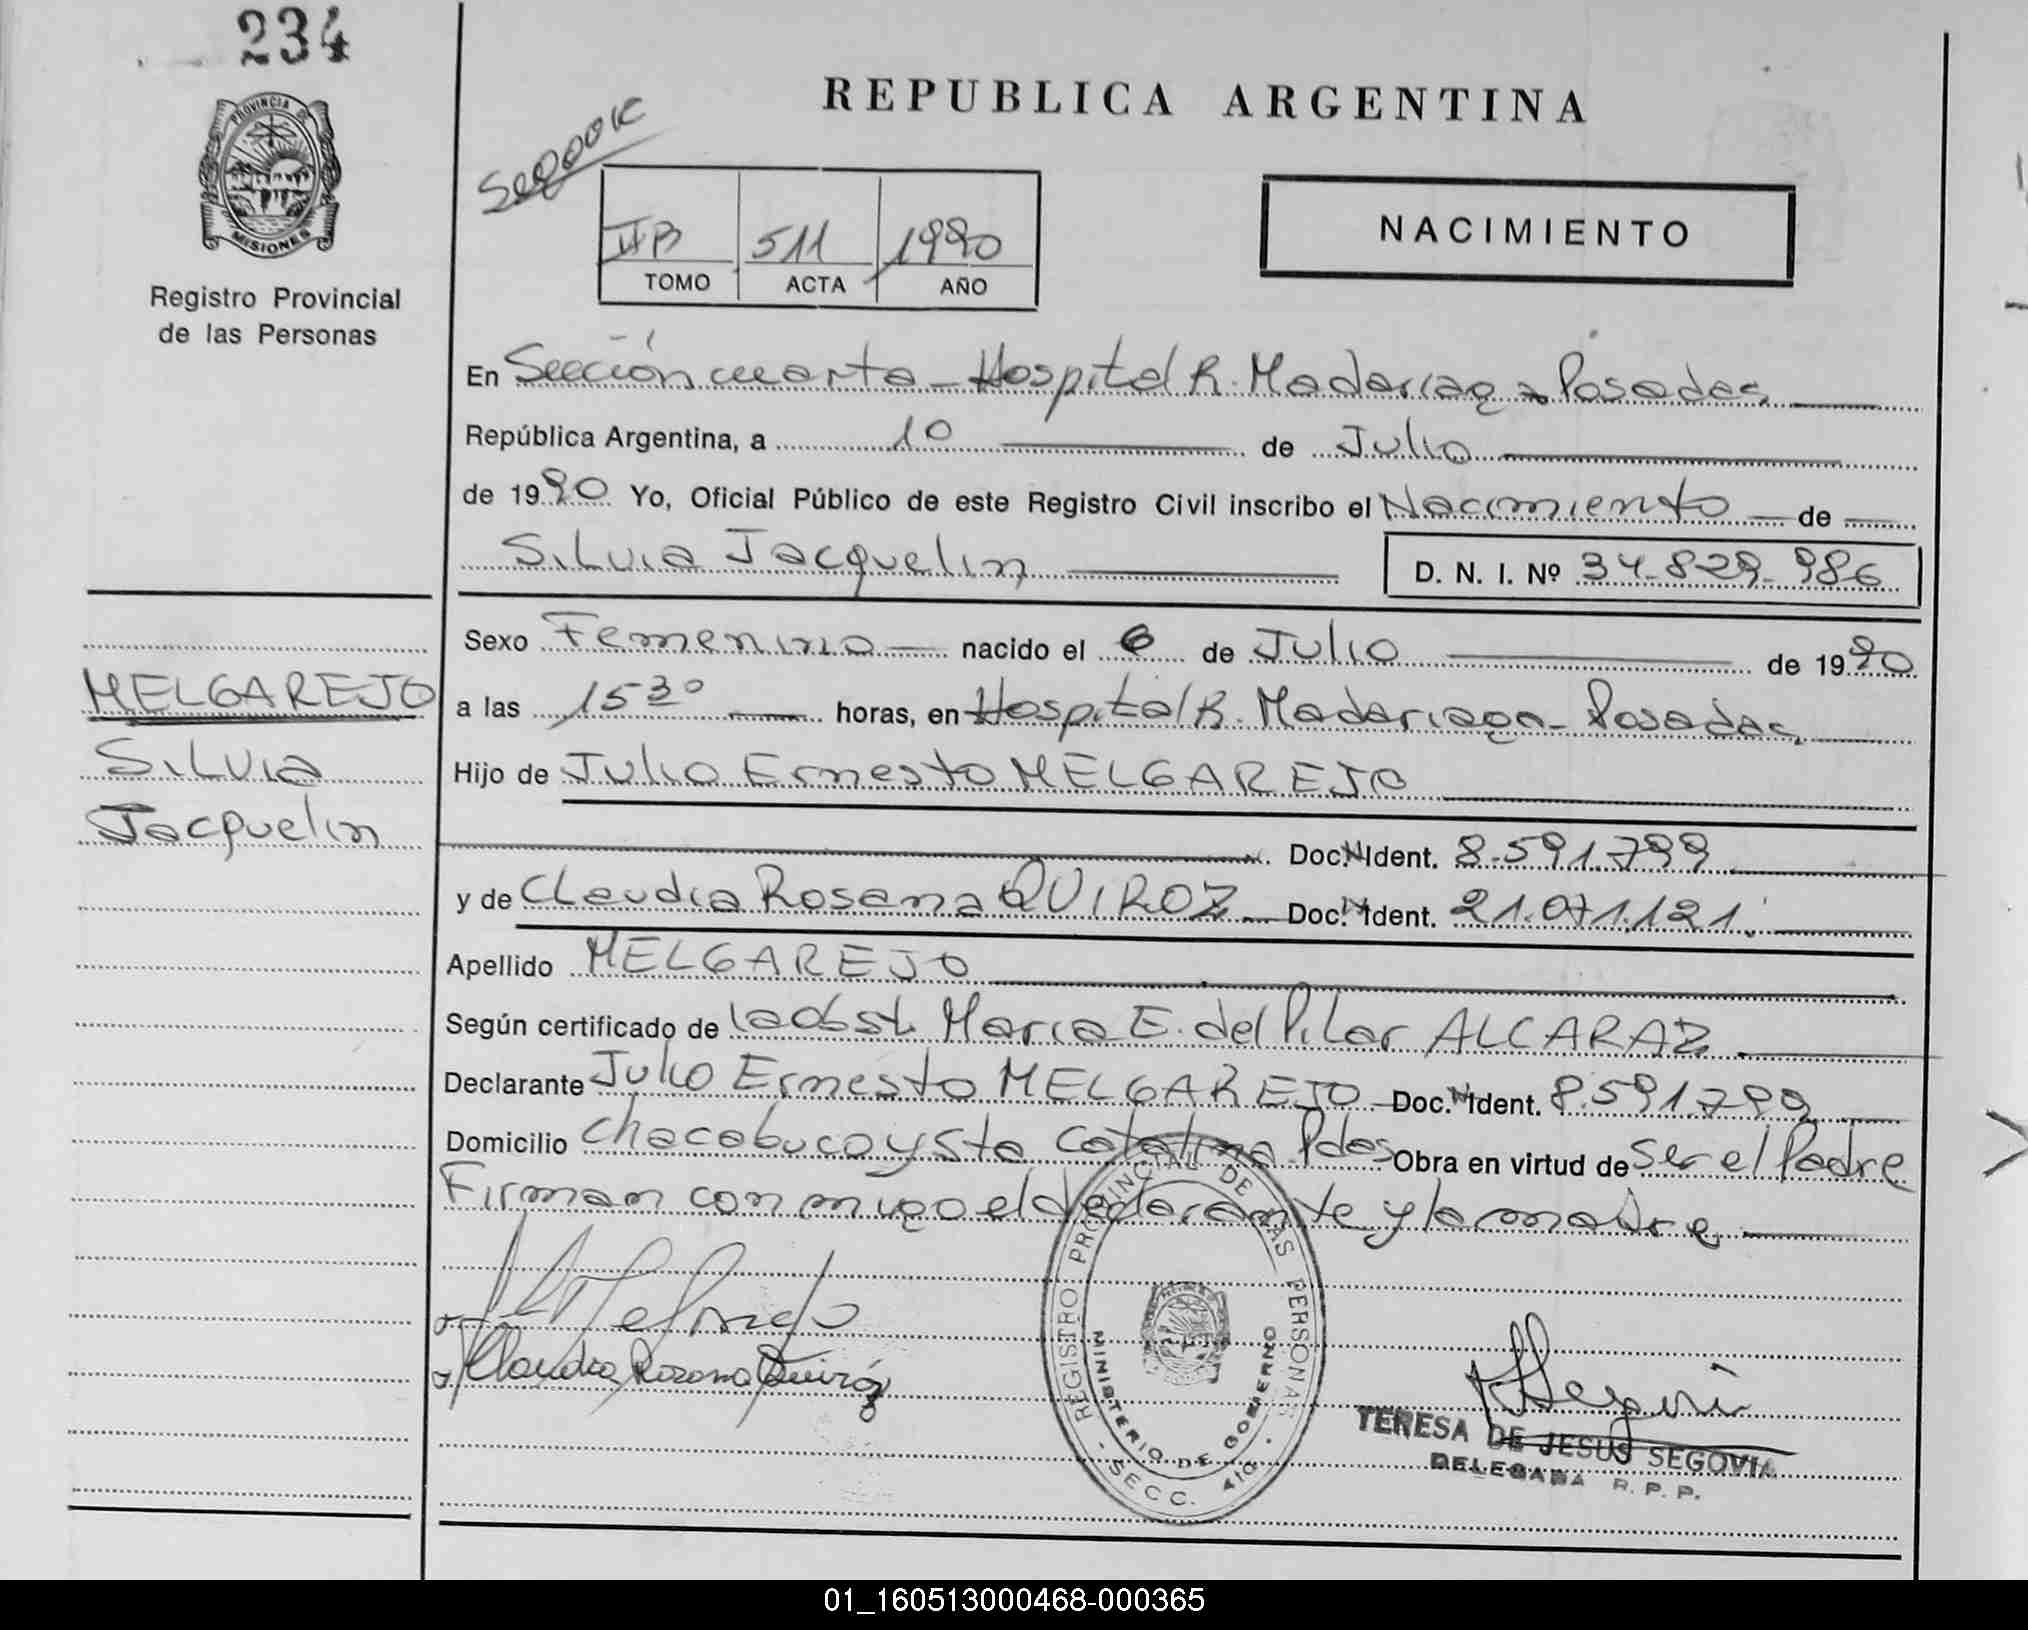 234
PROVINCIA DE
MISIONES
Registro Provincial
de las Personas
MELGAREJO
Silvia
Jacquelin
REPUBLICA ARGENTINA
IIB 511 1990
TOMO ACTA AÑO
NACIMIENTO
En Sección cuarta - Hospital R. Madariaga - Posadas
República Argentina, a 10 de Julio
de 1990 Yo, Oficial Público de este Registro Civil inscribo el Nacimiento de
Silvia Jacquelin D. N. I. Nº 34.829.986
Sexo Femenino nacido el 6 de Julio de 1990
a las 15 30 horas, en Hospital R. Madariaga - Posadas
Hijo de Julio Ernesto MELGAREJO
Doc. Ident. 8.591.799
y de Claudia Rosana QUIROZ Doc. Ident. 21.071.121.
Apellido MELGAREJO
Según certificado de la Obst. Maria E. del Pilar ALCARAZ
Declarante Julio Ernesto MELGAREJO Doc. Ident. 8.591.799
Domicilio Chacabuco y Sta Catalina Pdas Obra en virtud de ser el Padre
Firman conmigo el declarante y la madre
Claudia Rosana Quiróz
REGISTRO PROVINCIAL DE LAS PERSONAS
MINISTERIO DE GOBIERNO
- SECC. 4ta. -
TERESA DE JESUS SEGOVIA
DELEGADA R. P. P.
01_160513000468-000365